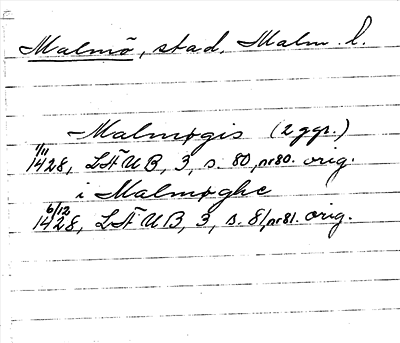 Malmö, stad, Malm. l.
Malmøgis (2 ggr.)
1/11 1428, LÄUB, 3, s. 80, nr 80. orig.
i Malmøghe
6/12 1428, LÄUB, 3, s. 81, nr 81. orig.